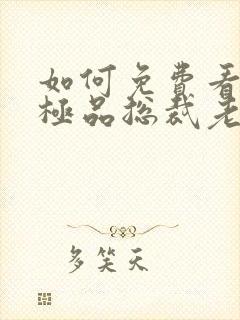 如何免費看
極品総裁老
多笑天